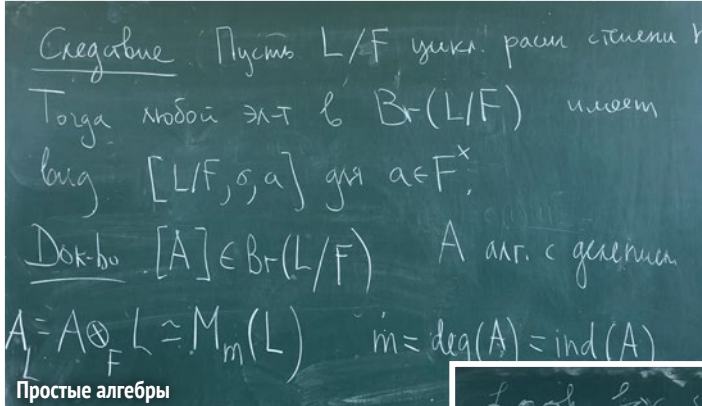 Следствие Пусть L/F цикл. расш степени n
Тогда любой эл-т в Br(L/F) имеет
вид [L/F, σ, a] для a∈F^×.
Док-во [A]∈Br(L/F) A алг. с делением
A_L = A⊗_F L ≃ M_m(L) m = deg(A) = ind(A)
Простые алгебры